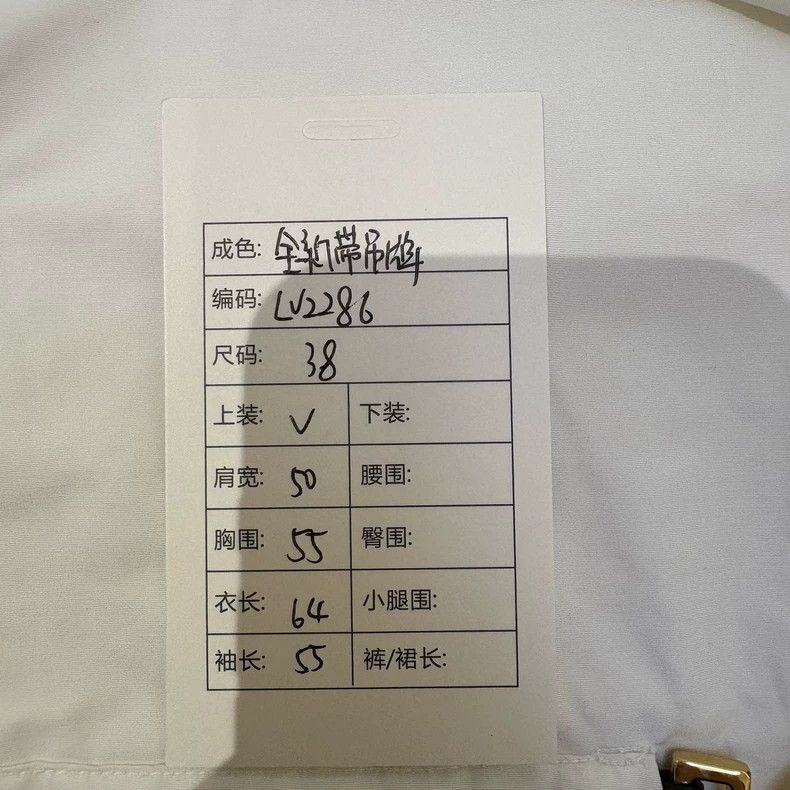 成色: 全新带吊牌
编码: LV2286
尺码: 38
上装: √ 下装:
肩宽: 50 腰围:
胸围: 55 臀围:
衣长: 64 小腿围:
袖长: 55 裤/裙长: